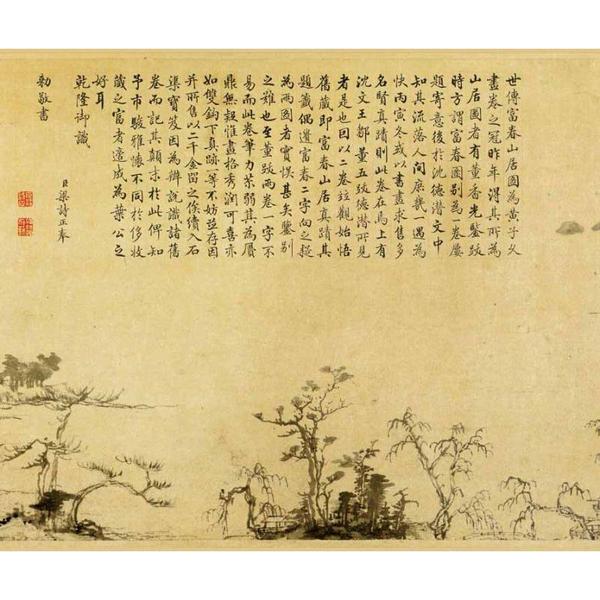 世傳富春山居圖為黃子久
畫卷之冠昨年得其所為
山居圖者有董香光鑒跋
時方謂富春圖別為一卷屢
題寄意後於沈德潛文中
知其流落人間庶幾一遇為
快丙寅冬或以書畫求售多
名賢真蹟則此卷在焉上有
沈文王鄒董五跋德潛所見
者是也因以二卷並觀始悟
舊藏即富春山居真蹟其
題籤偶遺富春二字向之疑
為兩圖者實悞甚矣鑒別
之難也至董跋兩卷一字不
易而此卷筆力茶弱其為贋
鼎無疑惟畫格秀潤可喜亦
如雙鉤下真跡一等不妨並存因
并所售以二千金留之俟續入石
渠寶笈因為辨說識諸舊
卷而記其顛末於此俾知
予市駿雅懷不同於侈收
藏之富者適成為葉公之
好耳
乾隆御識
臣梁詩正奉
勅敬書